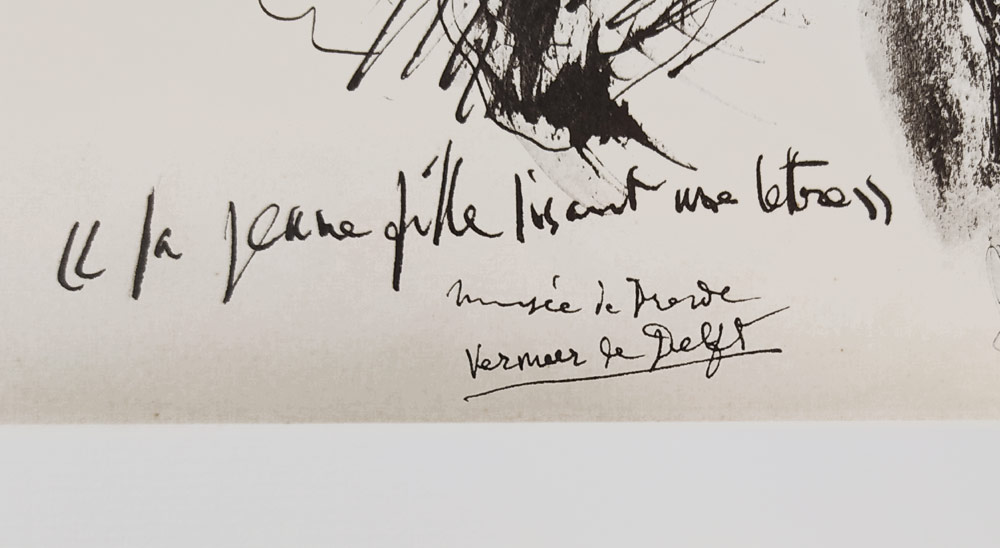 « la jeune fille lisant une lettre »
musée de Dresde
Vermeer de Delft